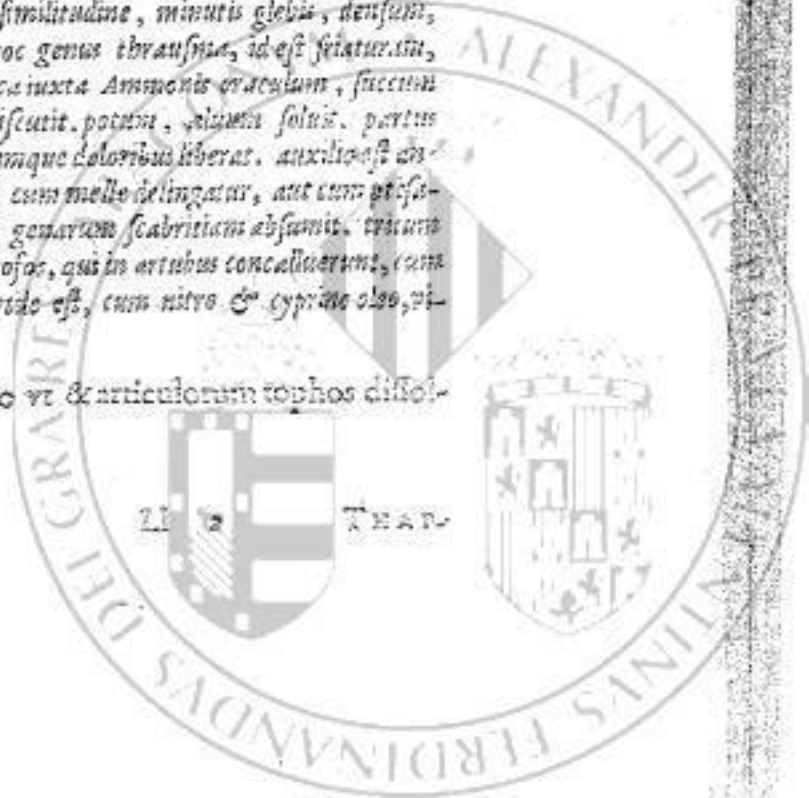 similitudine, minutis glebis, densum,
oc genus thrausma, id est friatur.siu,
ca iuxta Ammonis oraculum, succum
iscutit. potum, aluum soluit. partus
mque doloribus liberat. auxilio est an-
cum melle delingatur, aut cum ptisa-
genarum scabritiam absumit. tritum
osos, qui in artubus concalluerunt, cum
est, cum nitro & cyprino oleo,
vt & articulorum tophos dissol-
THAP-
ALEXANDER
FERDINANDVS DEI GRA